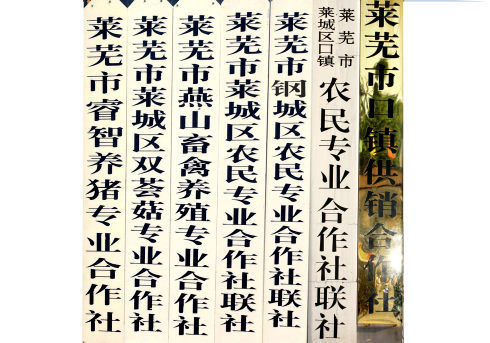 莱芜市睿智养猪专业合作社
莱芜市莱城区双荟菇专业合作社
莱芜市燕山畜禽养殖专业合作社
莱芜市莱城区农民专业合作社联社
莱芜市钢城区农民专业合作社联社
莱芜市
莱城区口镇
农民专业合作社联社
莱芜市口镇供销合作社